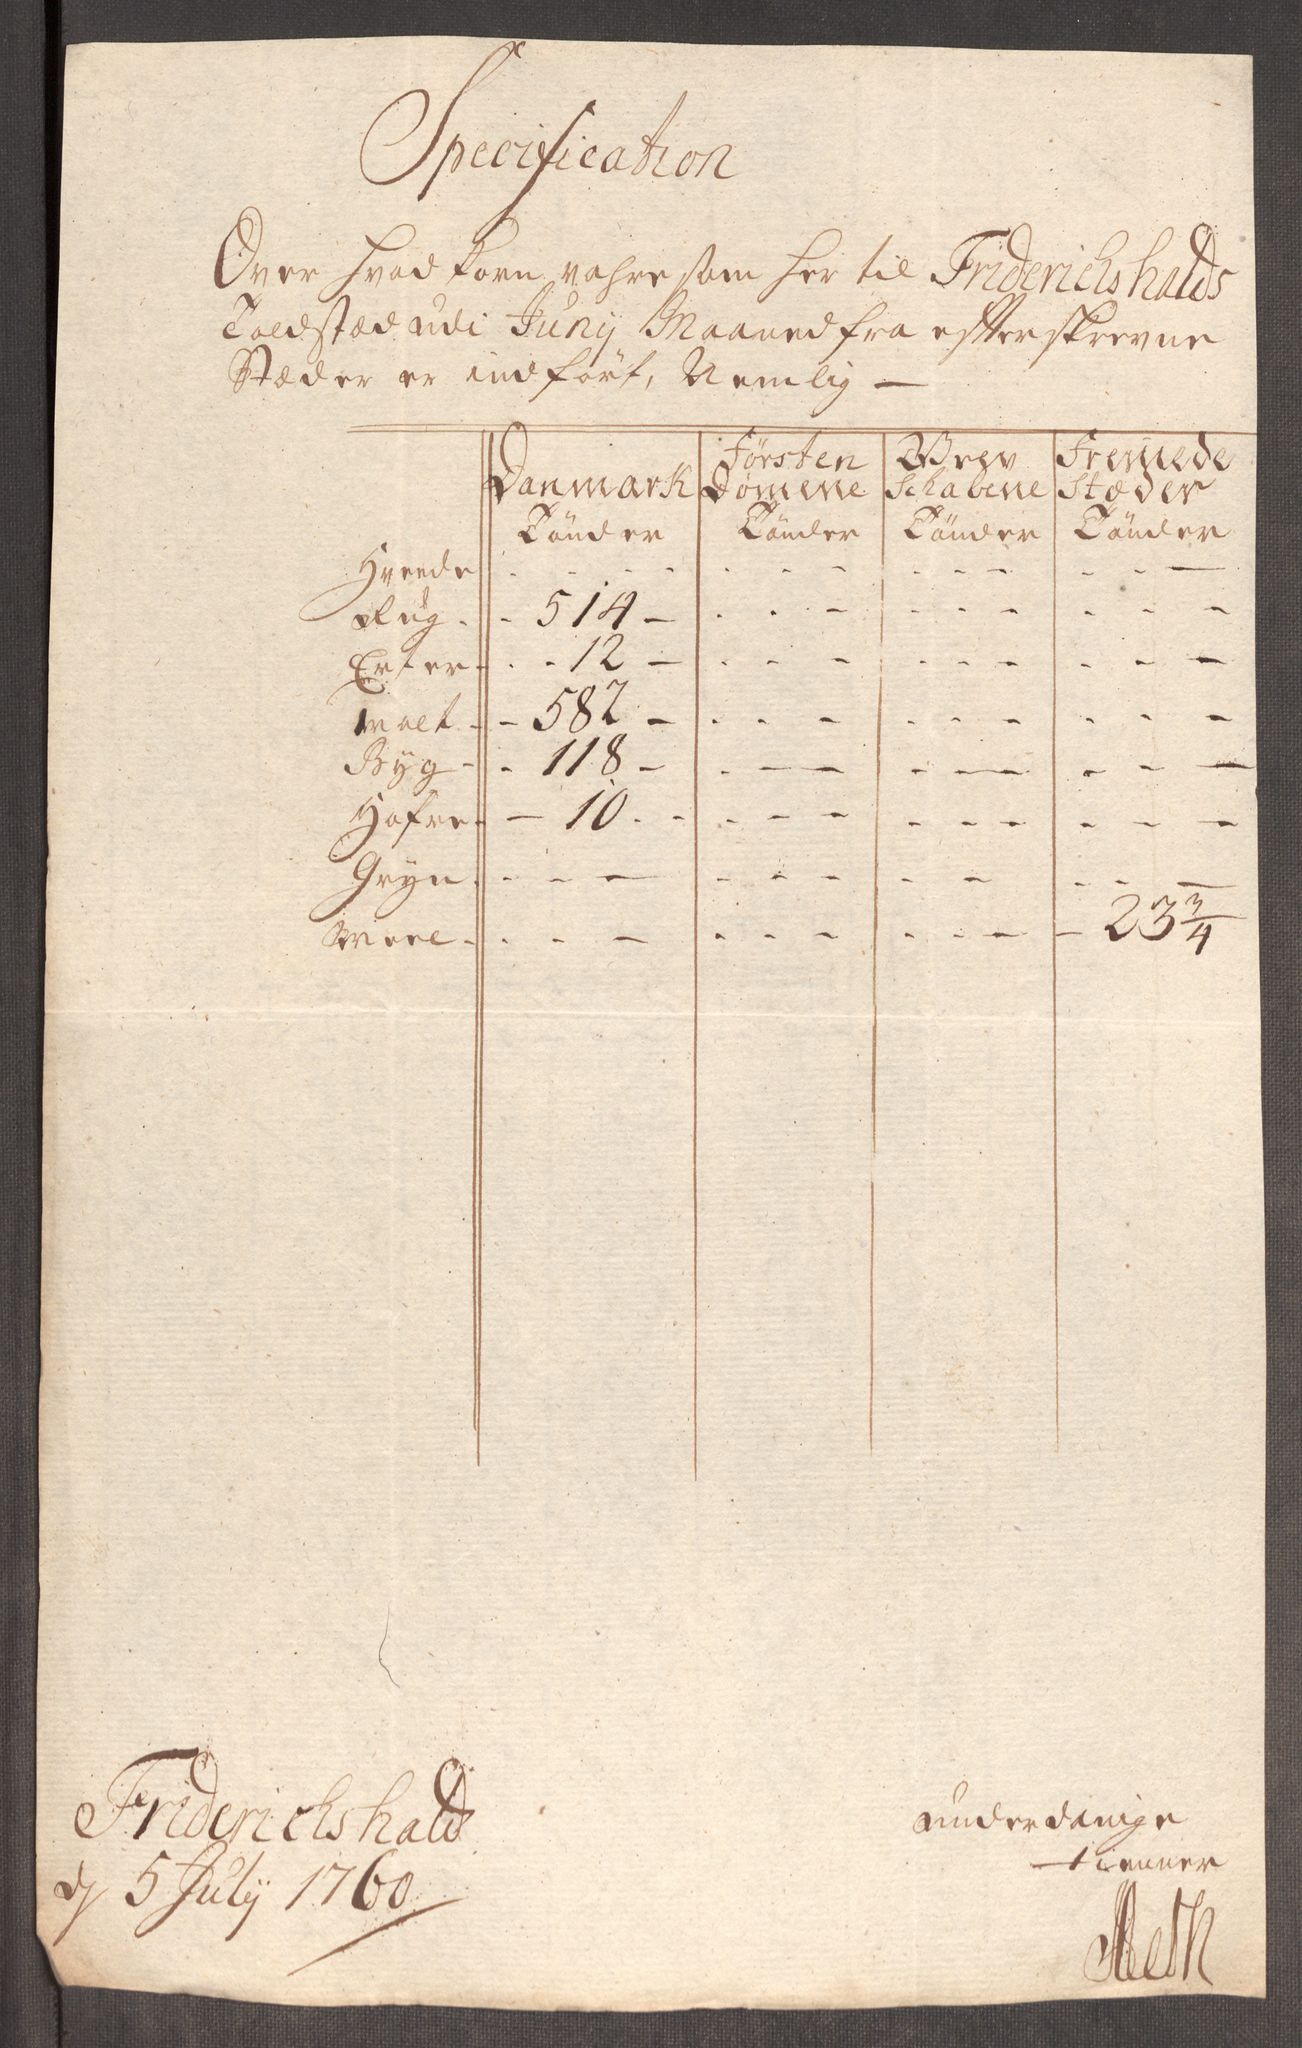 Specification
Over hvad korn vahre som her til Friderichshalds
Toldstæd udi Junÿ Maaned fra efterskrevne
Stæder er indført, Nemlig —
Danmark Førsten Dømene Grev Schabene Fremede Stæder
Tönder Tönder Tönder Tönder
Hveede - - - -
Rug - 514 - - - -
Erter - 12 - - - -
malt - 582 - - - -
Byg - 118 - - - -
Hafre - 10 - - - -
Gryn - - - -
Meel - - - - 23 3/4
Friderichshald
d 5 July 1760
underdanige
tienner